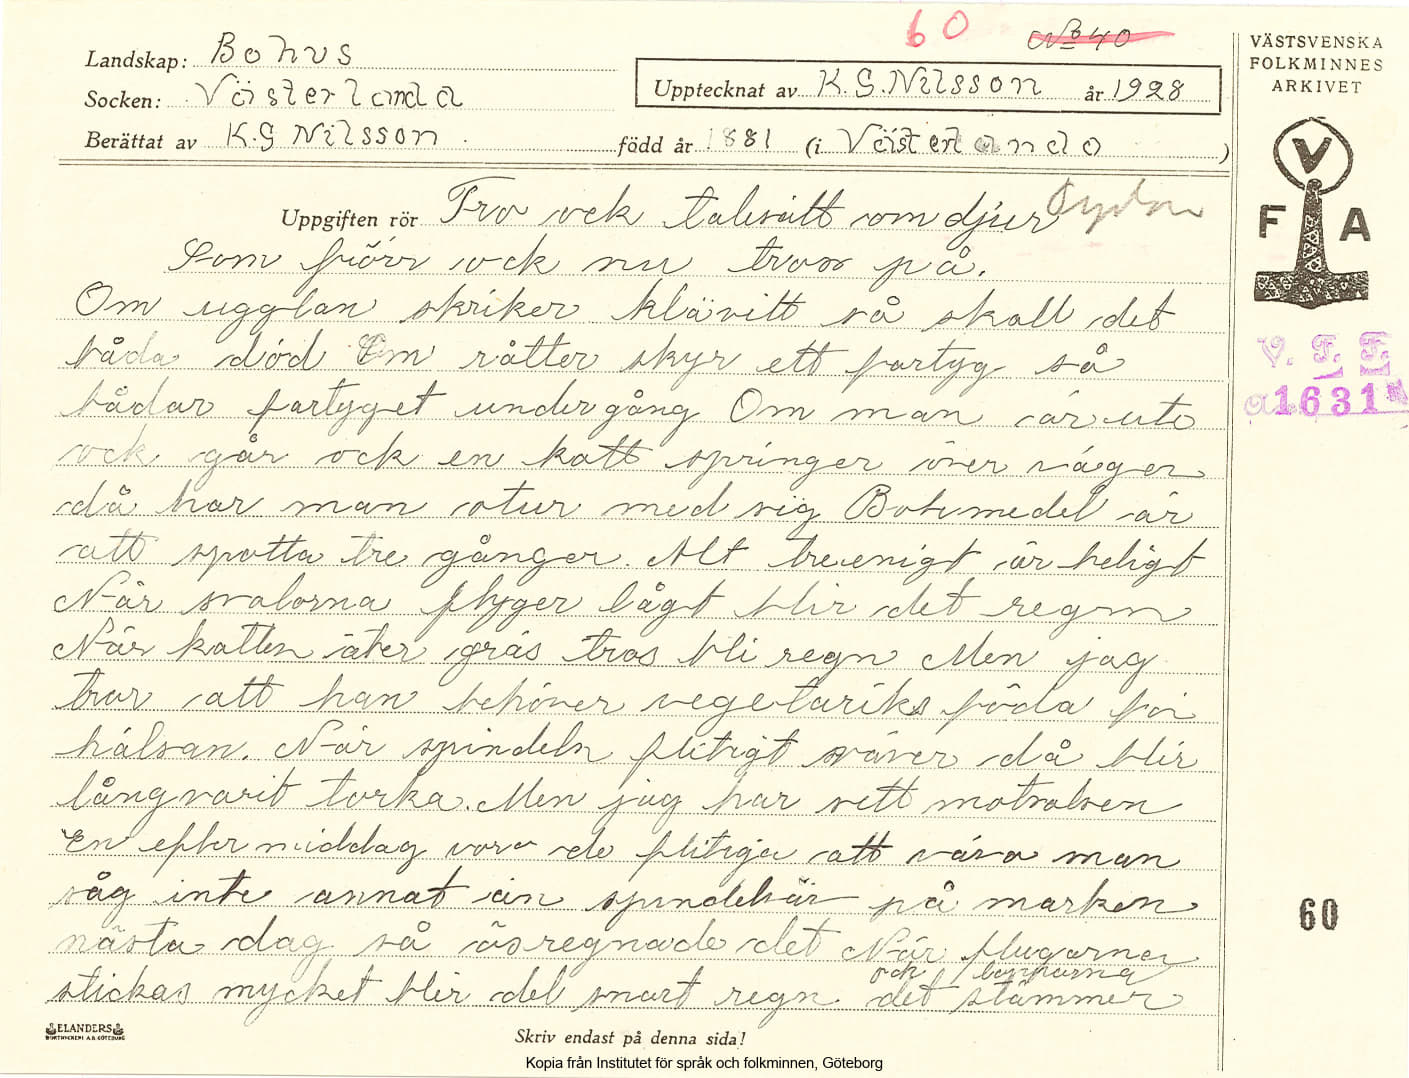 60 No 40
Landskap: Bohus
Socken: Västerlanda
Upptecknat av K. G. Nilsson år 1928
Berättat av K. G Nilsson född år 1881 (i Västerlanda)
VÄSTSVENSKA
FOLKMINNES
ARKIVET
V
F A
V. F. F.
a 1631
Uppgiften rör Tro ock talesätt om djur
Som förr ock nu tros på.
Om ugglan skriker klävitt så skall det
båda död Om råtter skyr ett fartyg så
bådar fartyget undergång Om man är ute
ock går ock en katt springer över vägen
då har man otur med sig Botemedel är
att spotta tre gånger. Alt treenigt är heligt
När svalorna flyger lågt blir det regn
När katten äter gräs tros bli regn Men jag
tror att han behöver vegetariks föda för
hälsan. När spindeln flitigt väver då blir
långvarit torka. Men jag har sett motsatsen
En efter middag vora de flitiga att väva man
såg inte annat än spindelvär på marken
nästa dag så ösregnade det När flugorna
och lopporna
stickas mycket blir del snart regn det stämmer
60
ELANDERS
BOKTRYCKERI A.B. GÖTEBORG
Skriv endast på denna sida!
Kopia från Institutet för språk och folkminnen, Göteborg